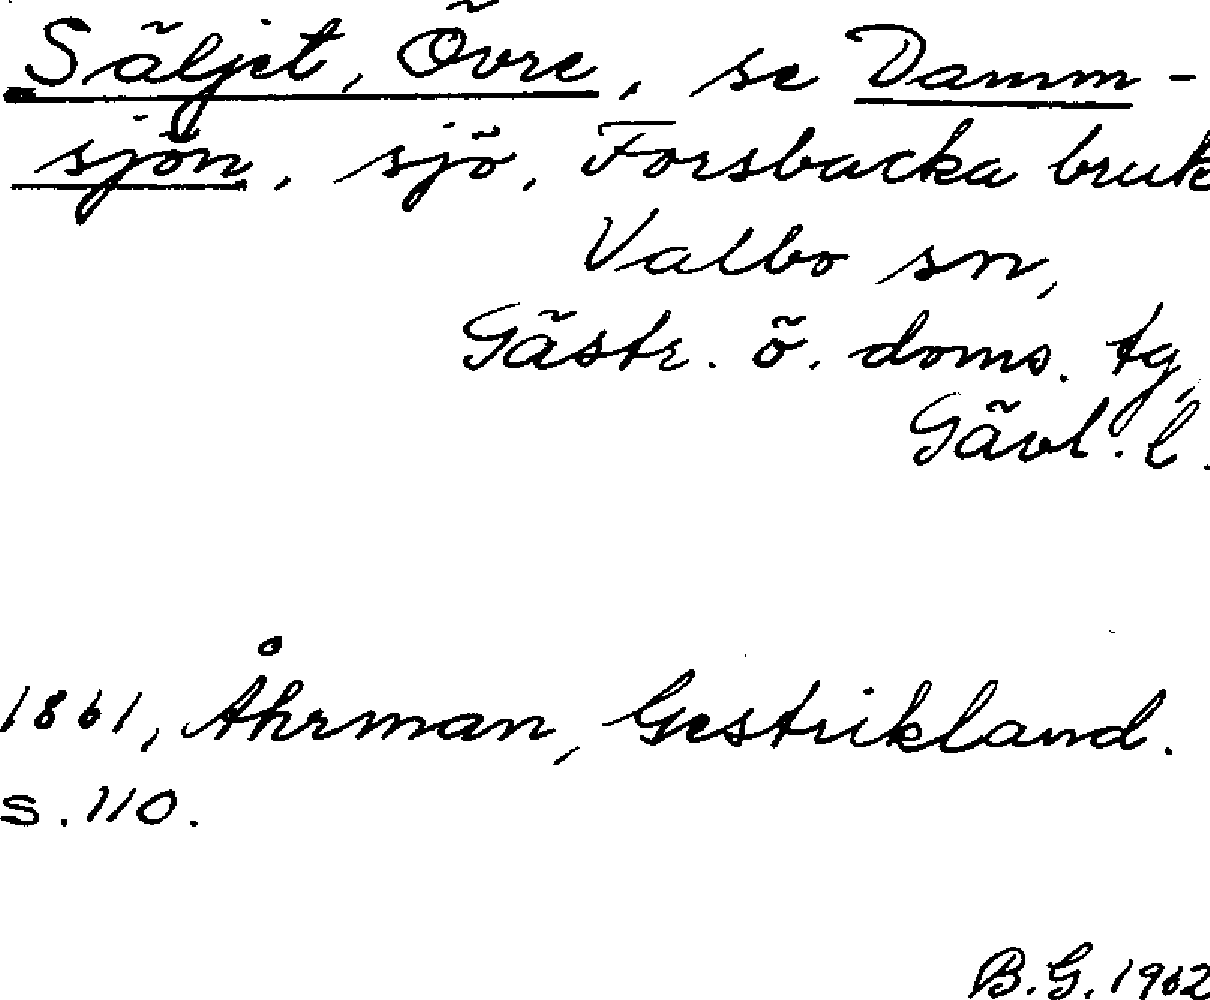 Säljet, Övre, se Damm-
sjön, sjö, Forsbacka bruk
Valbo sn,
Gästr. ö. doms. tg,
Gävl. l.
1861, Åhrman, Gestrikland.
s. 110.
B. G. 1962